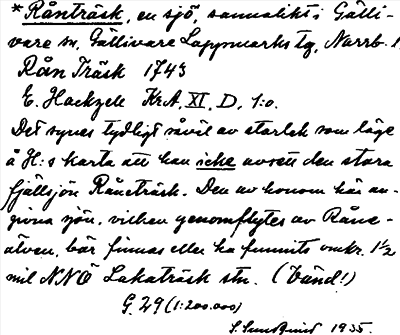 * Rånträsk, en sjö, sannolikt i Gälli-
vare sn, Gällivare Lappmarks tg, Norrb. l.
Rån Träsk 1743
E. Hackzell KrA, XI, D, 1:o.
Det synes tydligt såväl av storlek som läge
å H:s karta att han icke avsett den stora
fjällsjön Råneträsk. Den av honom här an-
givna sjön, vilken genomflytes av Råne-
älven, bör finnas eller ha funnits omkr. 1½
mil NNÖ Lakaträsk stn. (Vänd!)
G. 29 (1:200.000)
S. Sundbaum 1935.